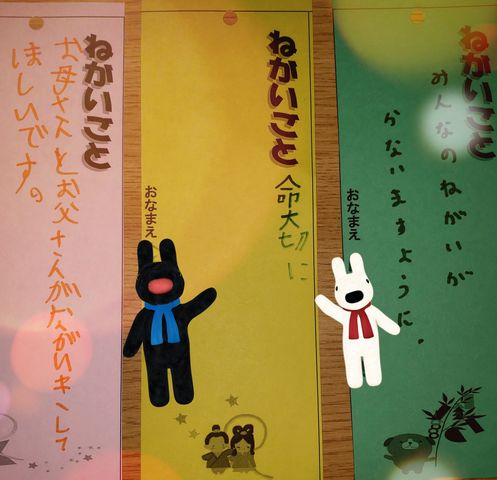 ねがいごと
みんなのねがいが
かないますように。
おなまえ
ねがいごと
命大切に
おなまえ
ねがいごと
お母さんとお父さんがながいきして
ほしいです。